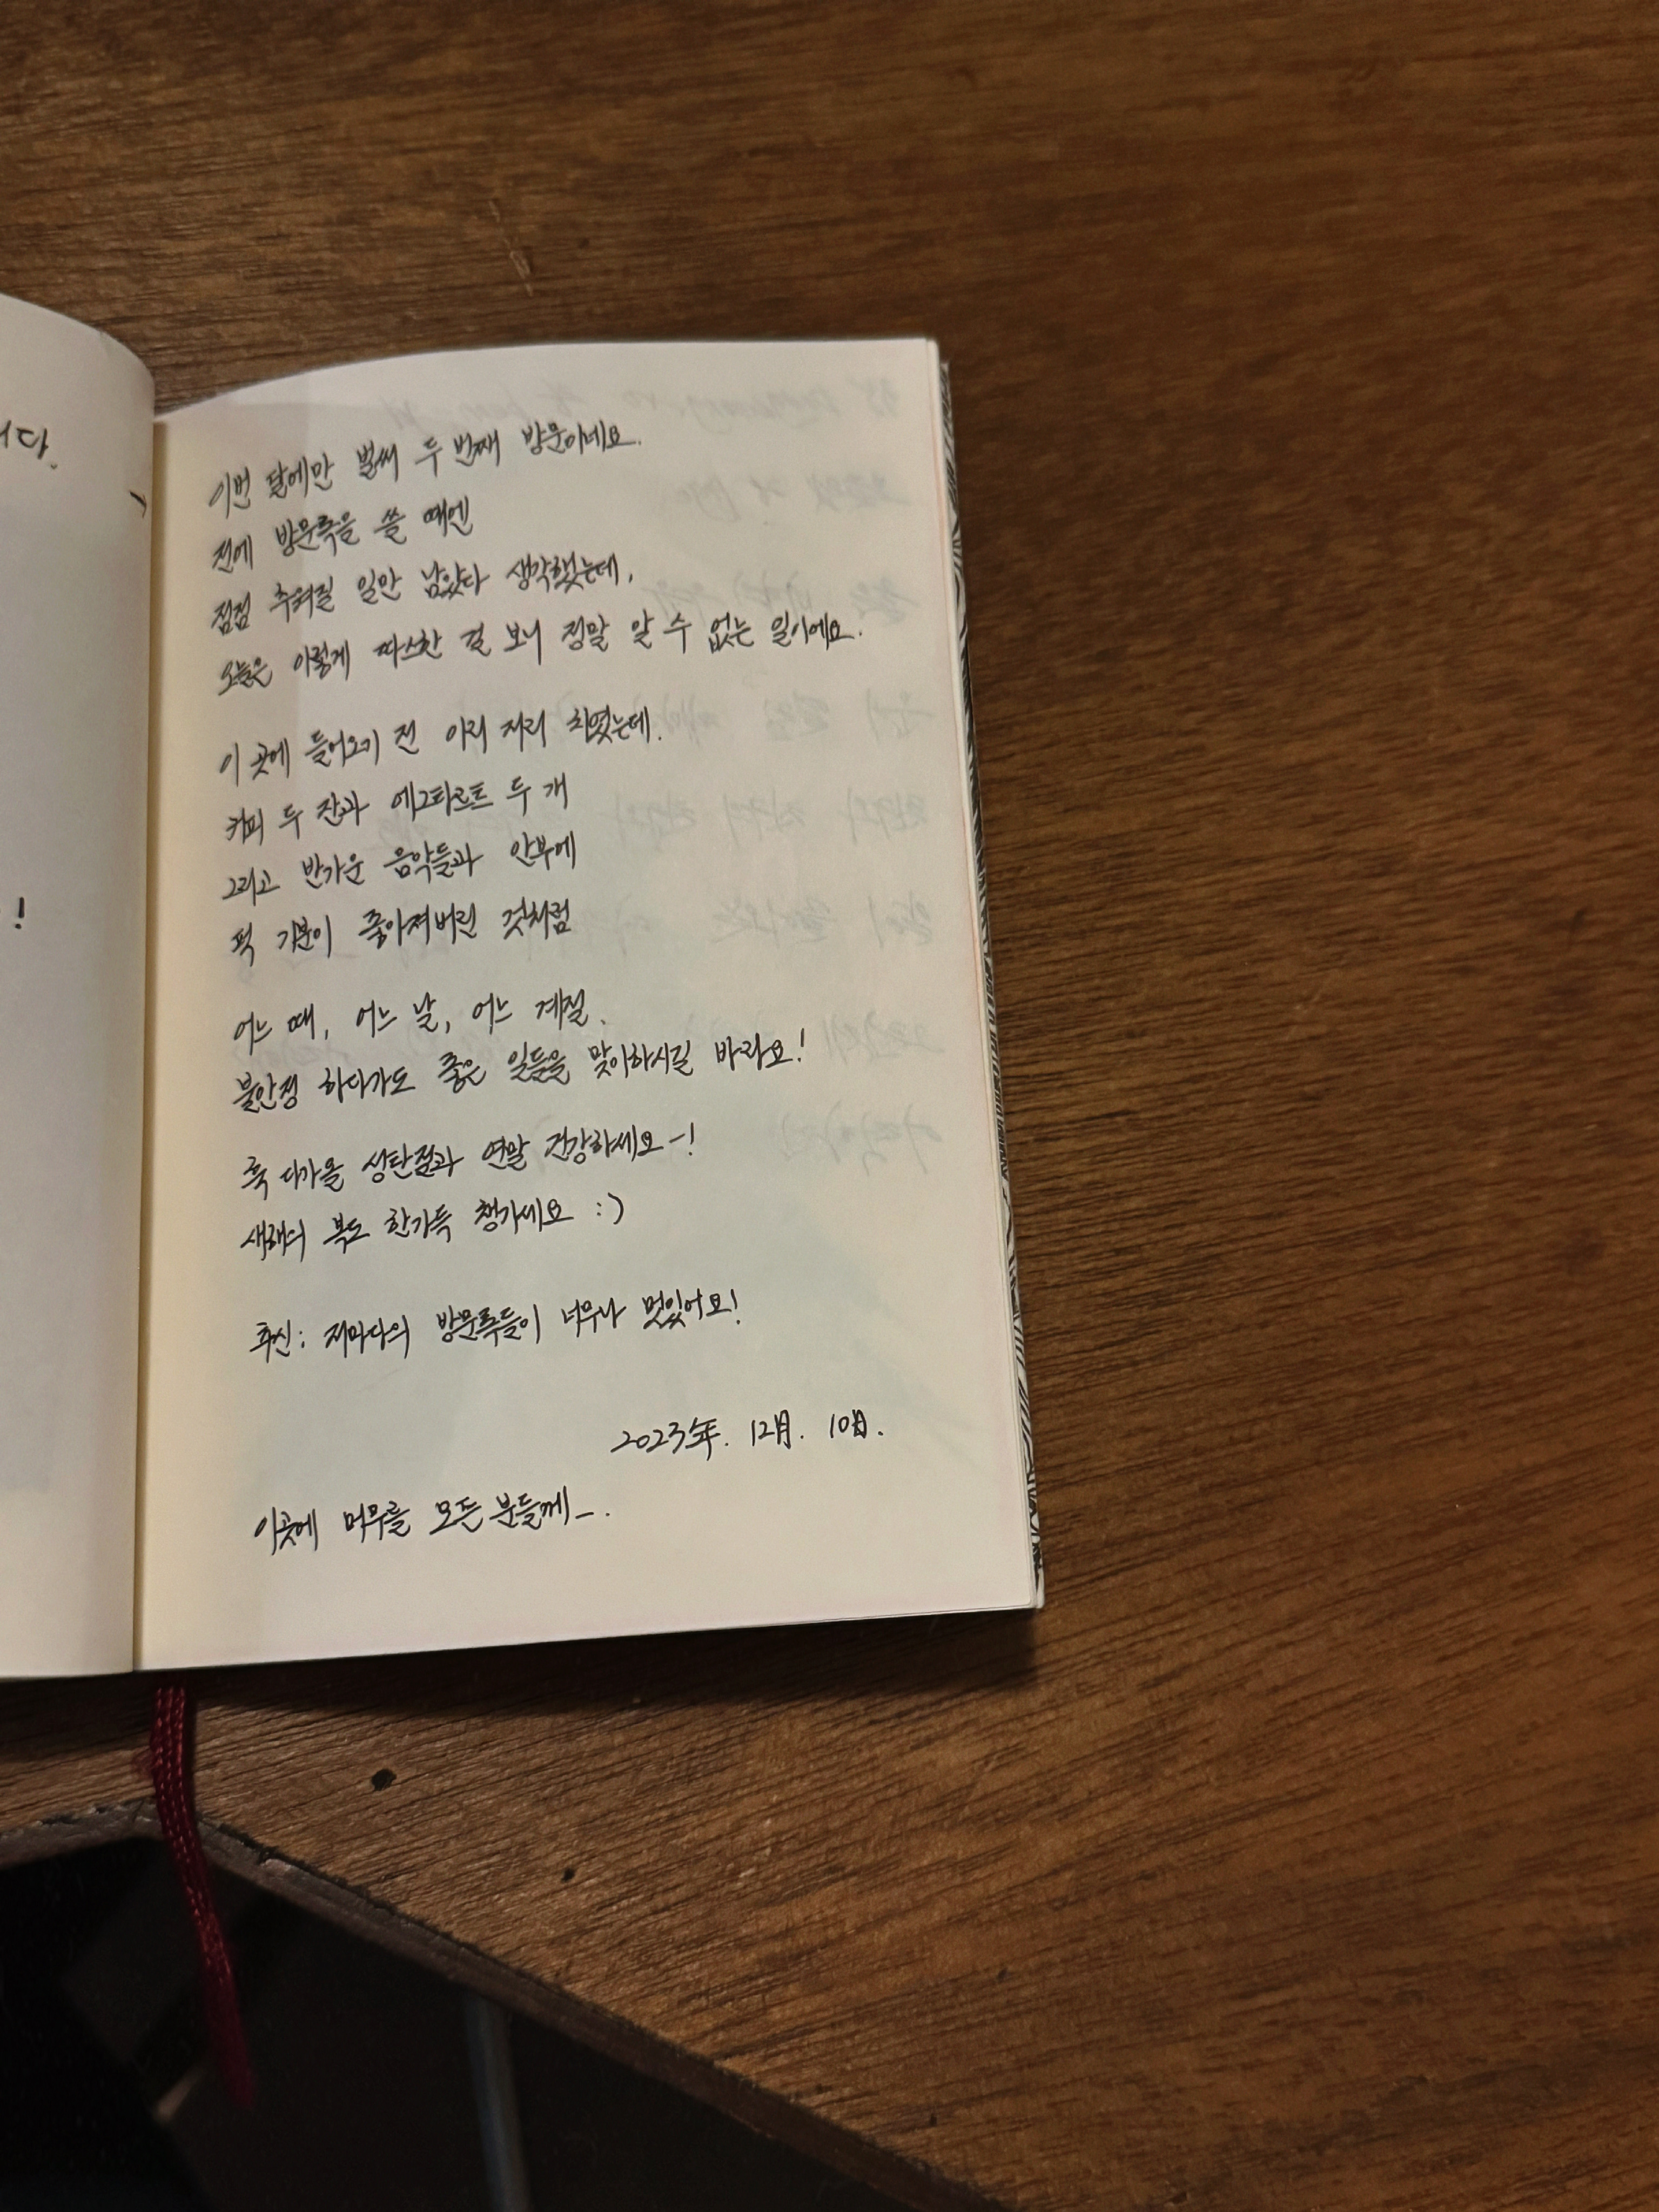 니다.
!
이번 달에만 벌써 두 번째 방문이네요.
전에 방문록을 쓸 때엔
점점 추워질 일만 남았다 생각했는데,
오늘은 이렇게 따스한 걸 보니 정말 알 수 없는 일이에요.
이 곳에 들어오기 전 이리 저리 치였는데.
커피 두 잔과 에그타르트 두 개
그리고 반가운 음악들과 안부에
퍽 기분이 좋아져버린 것처럼
어느 때, 어느 날, 어느 계절.
불안정 하다가도 좋은 일들을 맞이하시길 바라요!
훅 다가올 성탄절과 연말 건강하세요-!
새해의 복도 한가득 챙기세요 :)
추신: 저마다의 방문록들이 너무나 멋있어요!
2023年. 12月. 10日.
이곳에 머무를 모든 분들께_.